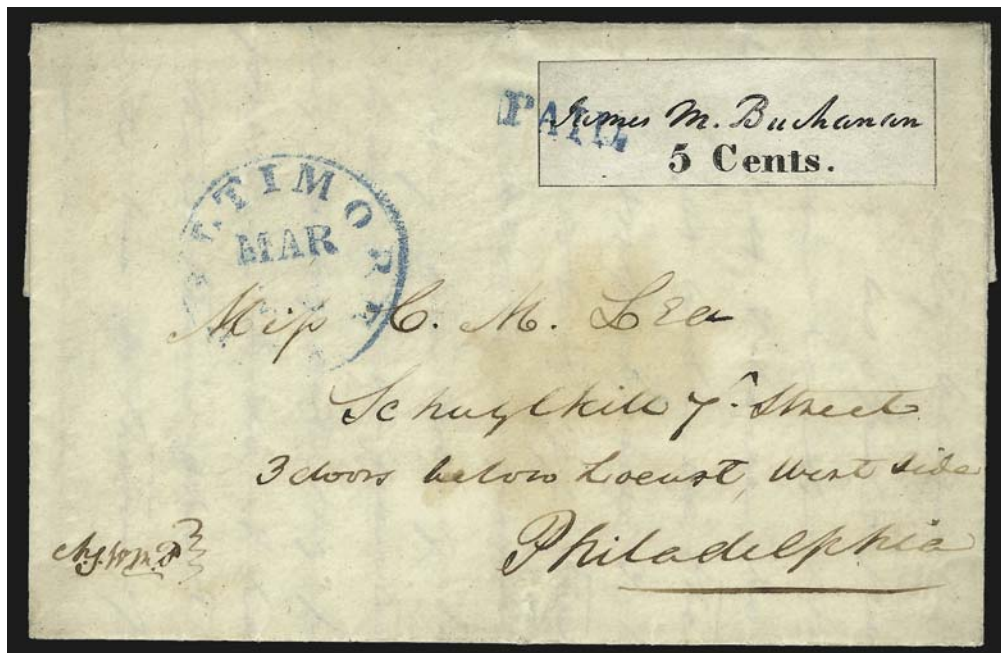 PAID
James M. Buchanan
5 Cents.
BALTIMORE
MAR
Miss C. M. Lea
Schuylkill 7th Street
3 doors below Locust, West Side
Philadelphia